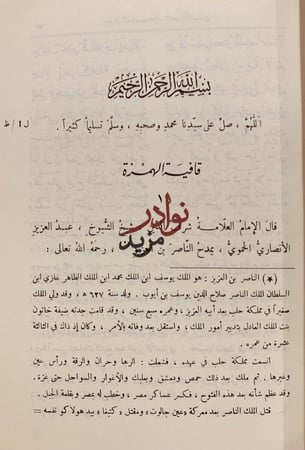 بسم الله الرحمن الرحيم
اللهُمَّ ، صلّ على سيّدنا محمد وصحبه ، وسلّم تسليماً كثيراً . ل ١ / ظ
قافية الهمزة
نوادر
مزيد
قال الإمام العلّامة شر شيخ الشيوخ ، عبد العزيز
الأنصاريّ الحمويّ ، يمدح النّاصر بن ، رحمه الله تعالى :
(*) الناصر بن العزيز : هو الملك يوسف ابن الملك محمد ابن الملك الظاهر غازي ابن
السلطان الملك الناصر صلاح الدين يوسف بن أيوب . ولد سنة ٦٢٧ هـ ، وقد ولي الملك
صغيراً في مملكة حلب بعد أبيه العزيز ، وعمره سبع سنين ، وقد قامت جدته ضيفة خاتون
بنت الملك العادل بتدبير أمور الملك ، واستقل بعد وفاته بالأمر . وكان إذ ذاك في الثالثة
عشرة من عمره .
اتسعت مملكة حلب في عهده ، فشملت : الرها وحران والرقة ورأس عين
وغيرها . ثم ملك بعد ذلك حمص ودمشق وبعلبك والأغوار والسواحل حتى غزة .
وقد عظم شأنه بعد هذه الفتوح ، فكسر عساكر مصر ، وخطب له بمصر وبقلعة الجبل .
قتل الملك الناصر بعد معركة «عين جالوت» ومقتل «كتبغا» بيد هولاكو نفسه =